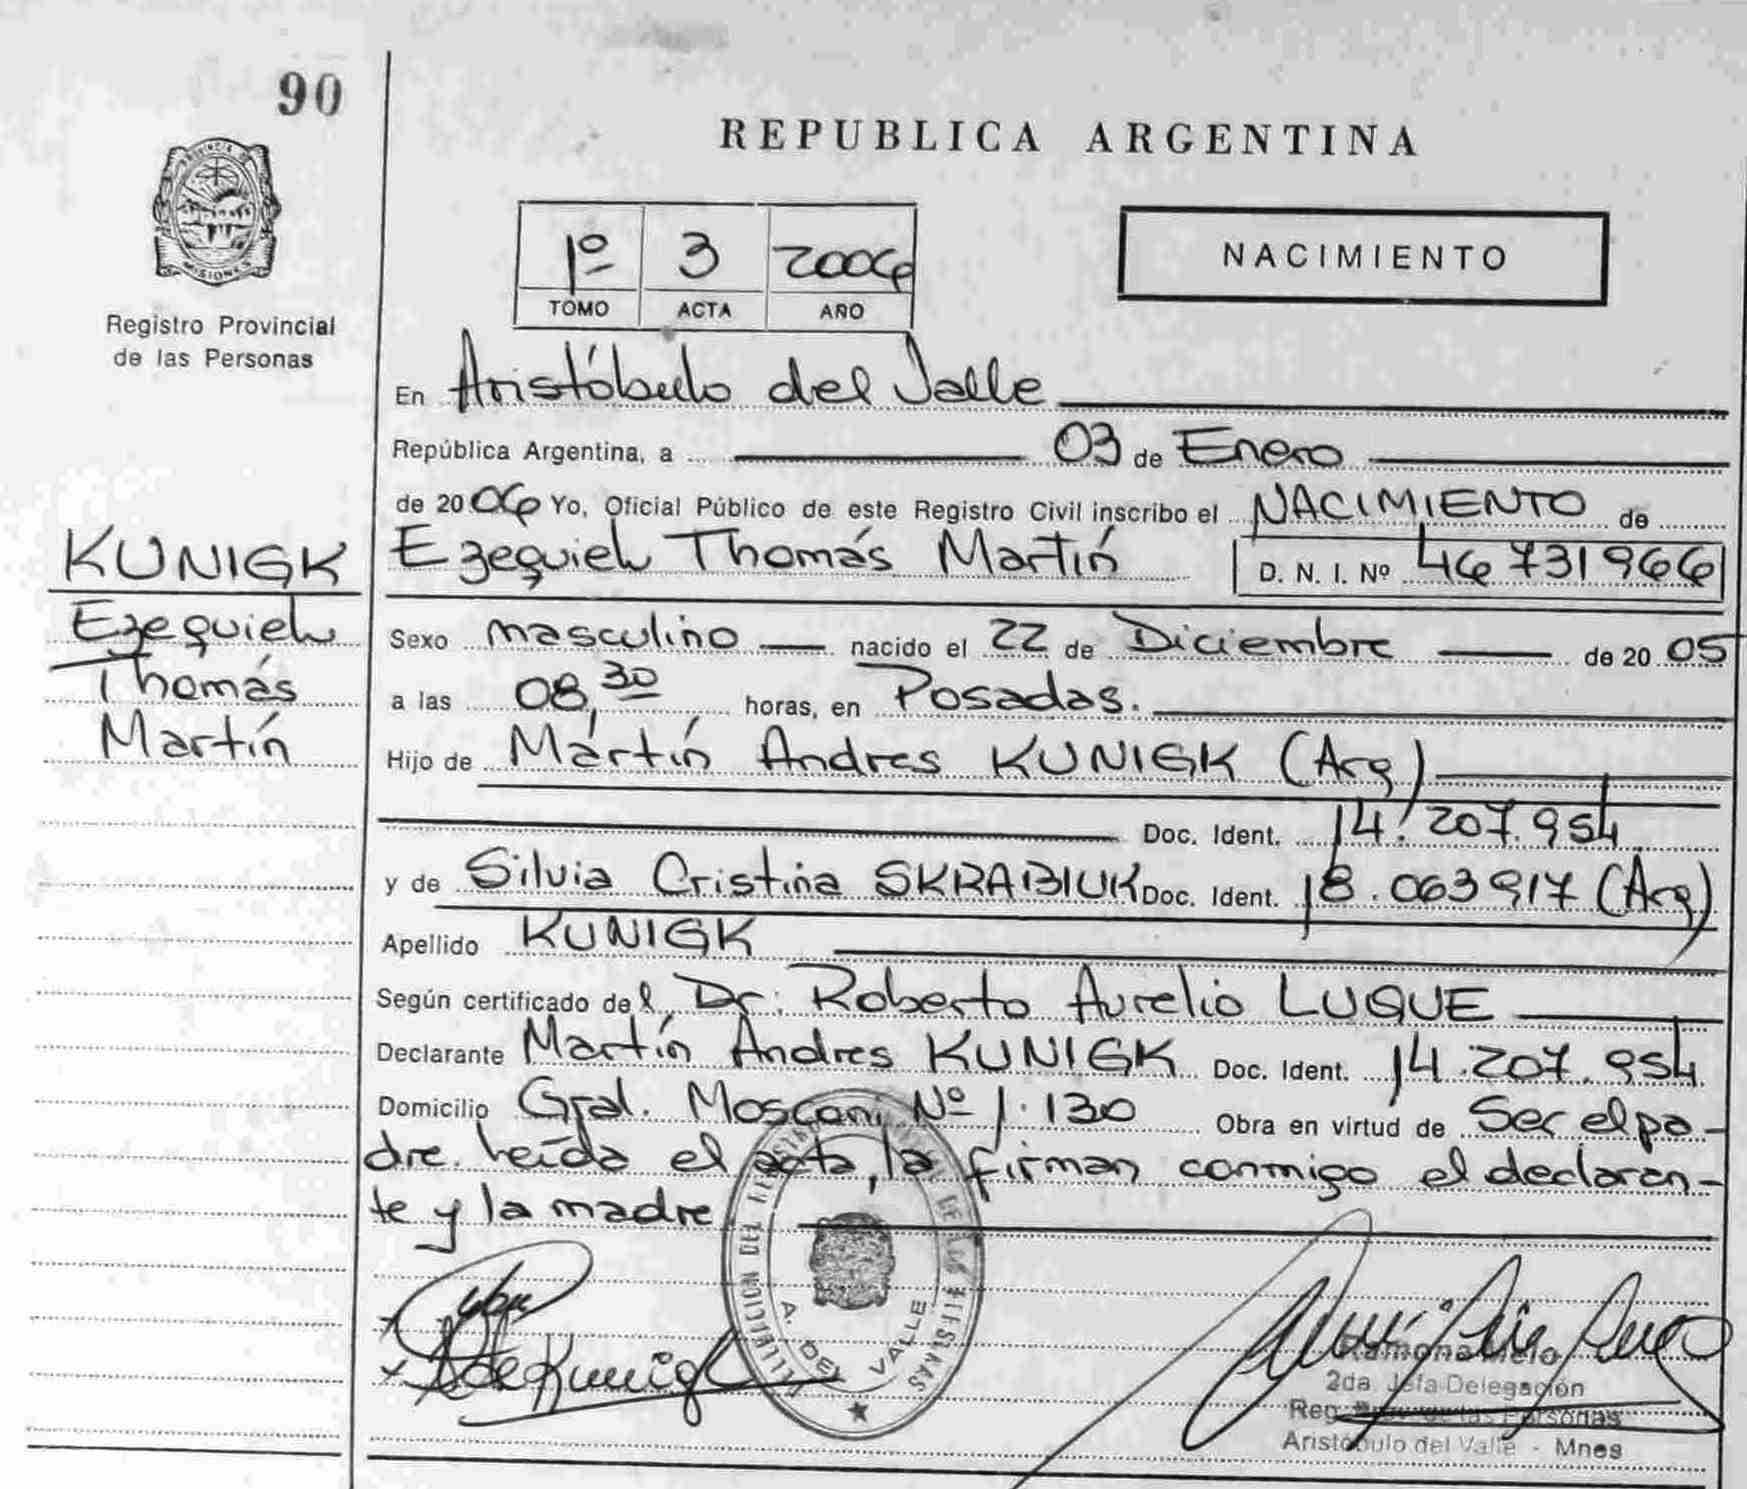 90
PROVINCIA DE
MISIONES
Registro Provincial
de las Personas
KUNIGK
Ezequiel
Thomás
Martín
REPUBLICA ARGENTINA
1º 3 2006
TOMO ACTA AÑO
NACIMIENTO
En Aristóbulo del Valle
República Argentina, a 03 de Enero
de 2006 Yo, Oficial Público de este Registro Civil inscribo el NACIMIENTO de
Ezequiel Thomás Martín D. N. I. Nº 46731966
Sexo masculino nacido el 22 de Diciembre de 2005
a las 08,30 horas, en Posadas.
Hijo de Martín Andres KUNIGK (Arg)
Doc. Ident. 14.207.954
y de Silvia Cristina SKRABIUK Doc. Ident. 18.063917 (Arg)
Apellido KUNIGK
Según certificado del Dr: Roberto Aurelio LUQUE
Declarante Martín Andres KUNIGK Doc. Ident. 14.207.954
Domicilio Gral. Mosconi Nº 1.130 Obra en virtud de Ser el pa-
dre. Leída el acta, la firman conmigo el declaran-
te y la madre
DEL DE LAS
A. DEL VALLE
Ramona Melo
2da. Jefa Delegación
Reg. Prov. de las Personas
Aristóbulo del Valle - Mnes